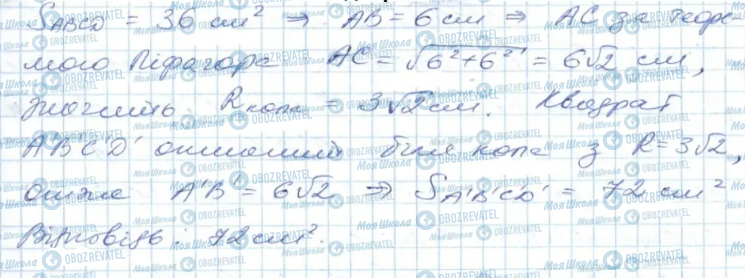 S_ABCD = 36 см² ⇒ AB = 6 см ⇒ AC за теоре-
мою Піфагора AC = √6²+6² = 6√2 см,
значить R кола = 3√2 см. Квадрат
A'B'C'D' описаний біля кола з R = 3√2,
отже A'B' = 6√2 ⇒ S_A'B'C'D' = 72 см²
Відповідь: 72 см².